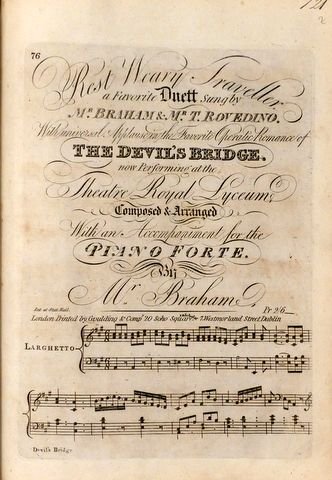 121
2
76
Rest Weary Traveller
a Favorite Duett Sung by
Mr. BRAHAM & Mr. T. ROVEDINO.
With universal Applause in the Favorite Operatic Romance of
THE DEVIL'S BRIDGE.
now Performing at the
Theatre Royal Lyceum,
Composed & Arranged
With an Accompaniment for the
PIANO FORTE.
By
Mr. Braham.
Ent. at Stat. Hall. Pr. 2/6
London Printed by Goulding & Compy. 20 Soho Square & 7 Westmorland Street Dublin
LARGHETTO
Devil's Bridge